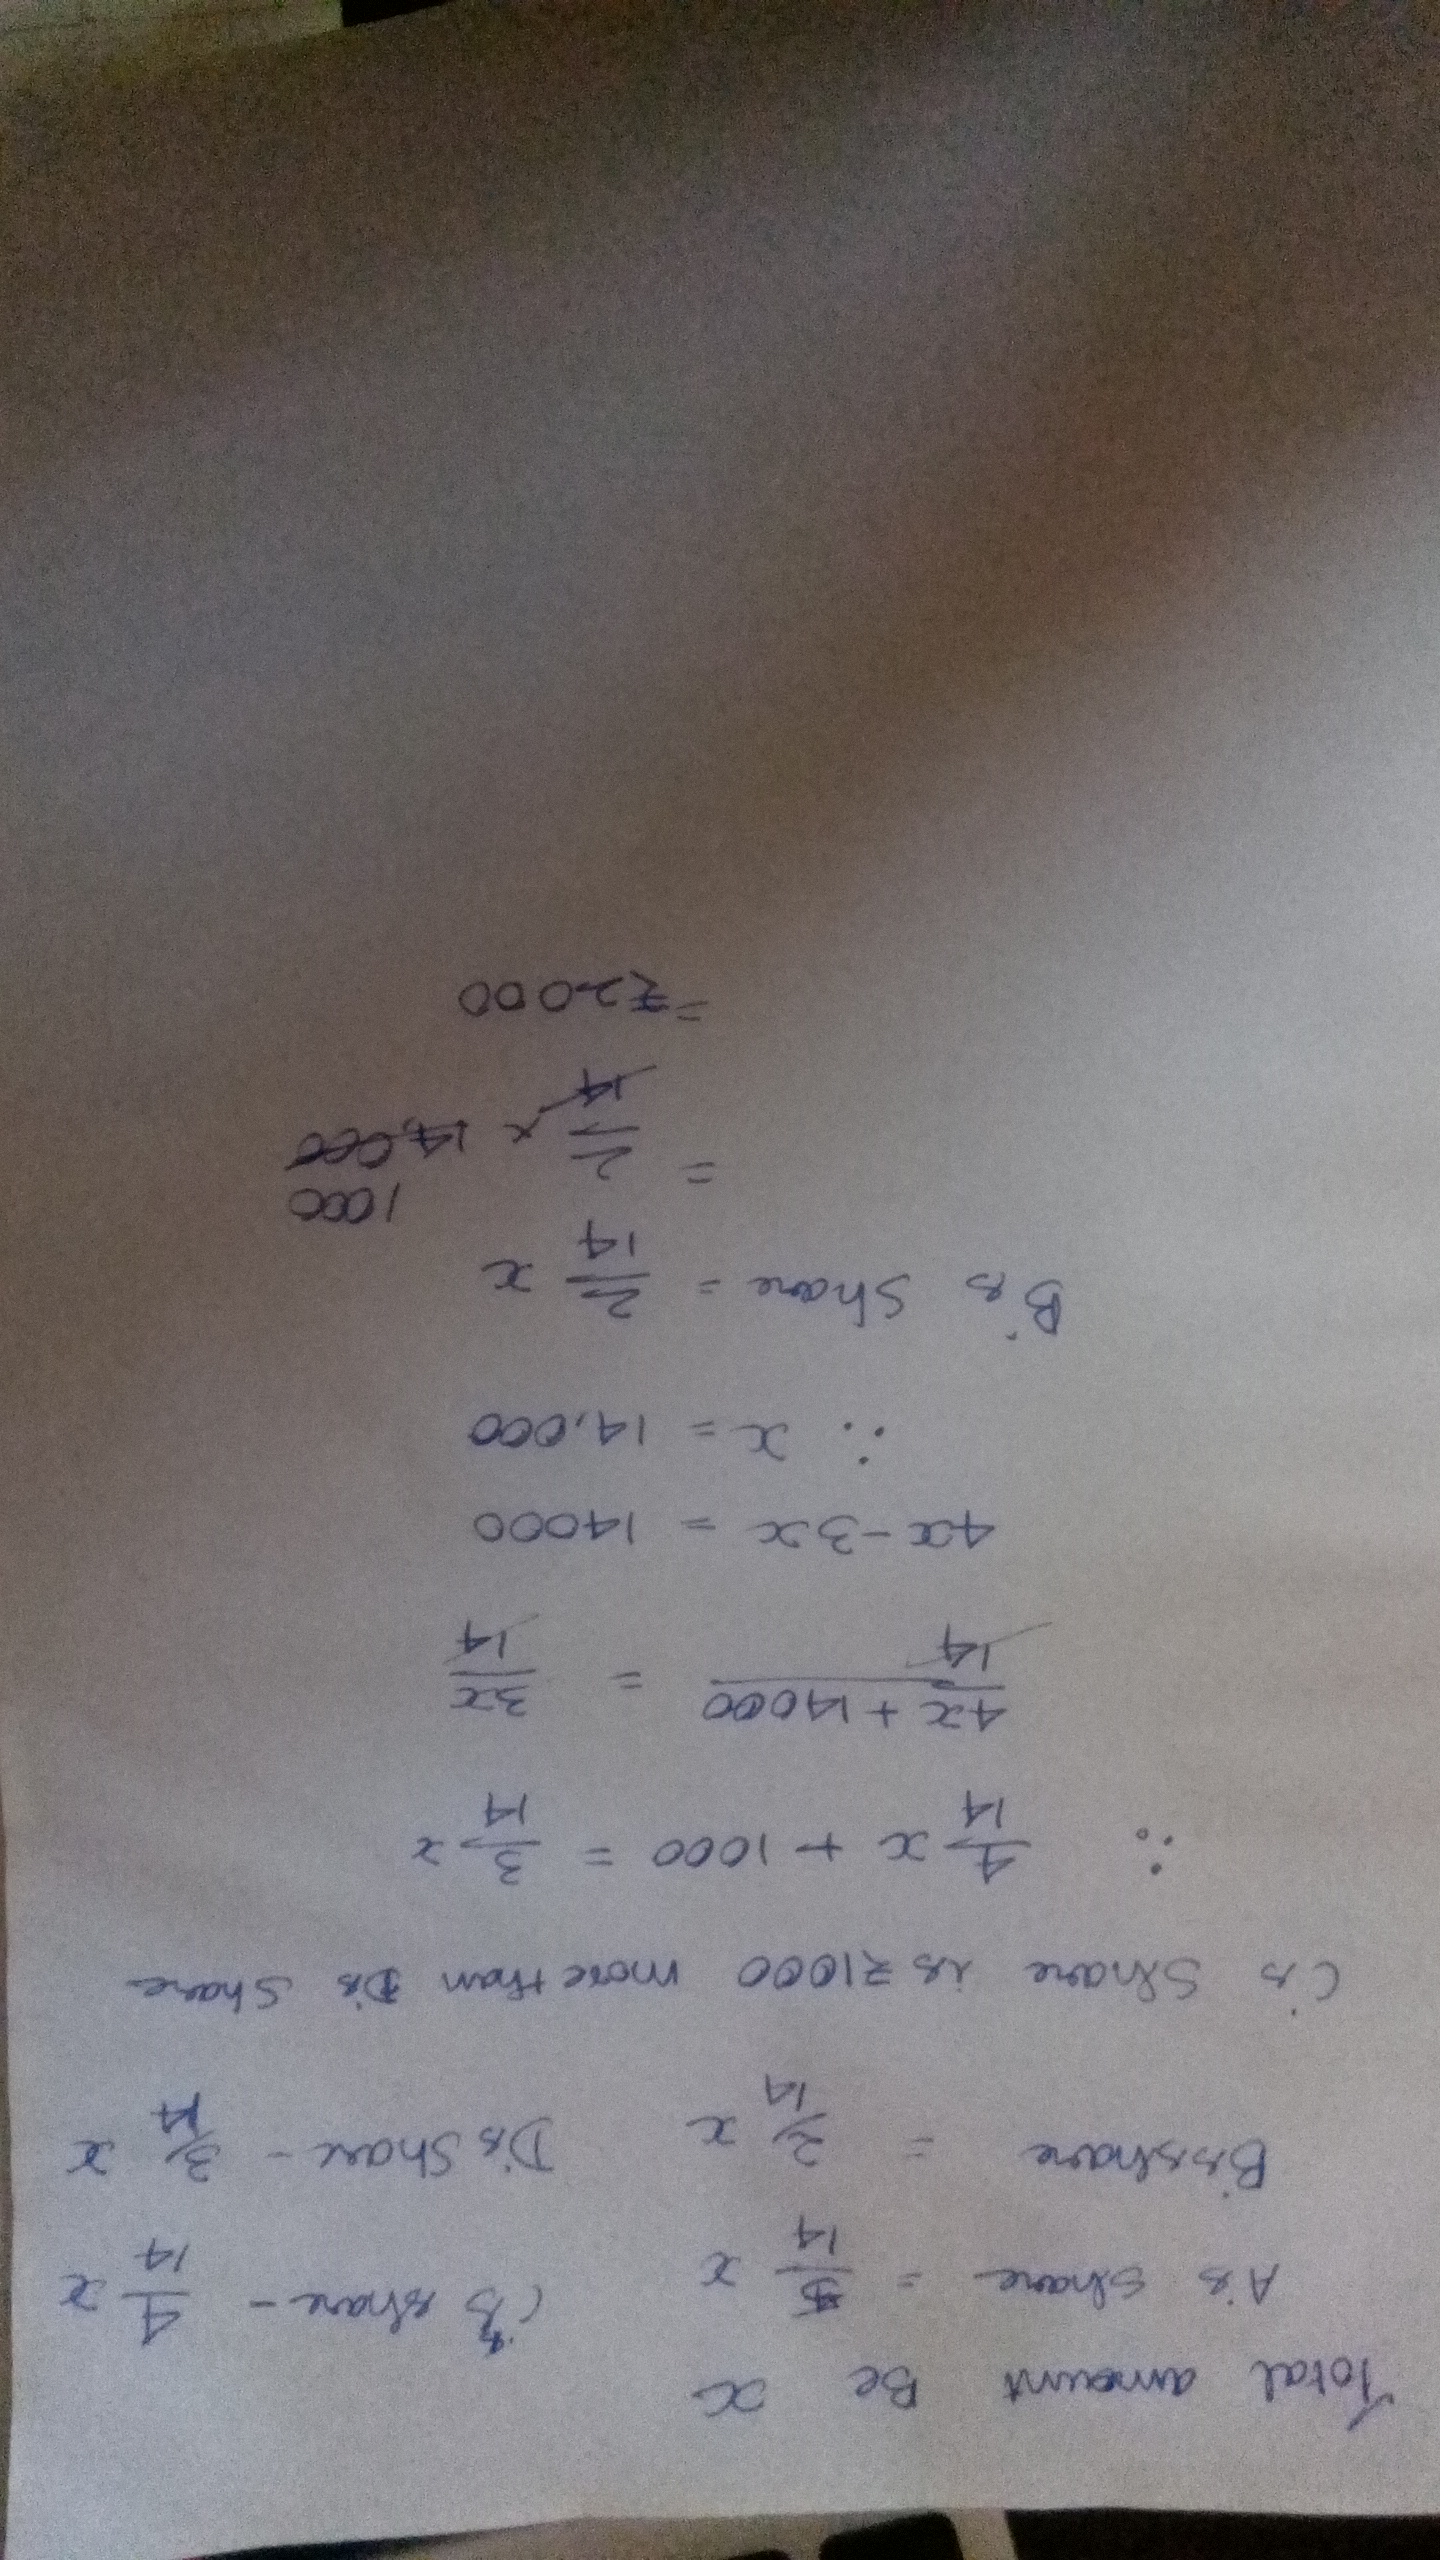 Total amount Be x
A's share = 5/14 x C's share - 4/14 x
B's share = 2/14 x D's Share - 3/14 x
C's Share is ₹1000 more than D's Share
∴ 4/14 x + 1000 = 3/14 x
4x + 14000/14 = 3x/14
4x - 3x = 14000
∴ x = 14,000
B's Share = 2/14 x
1000
= 2/14 x 14,000
= ₹2000